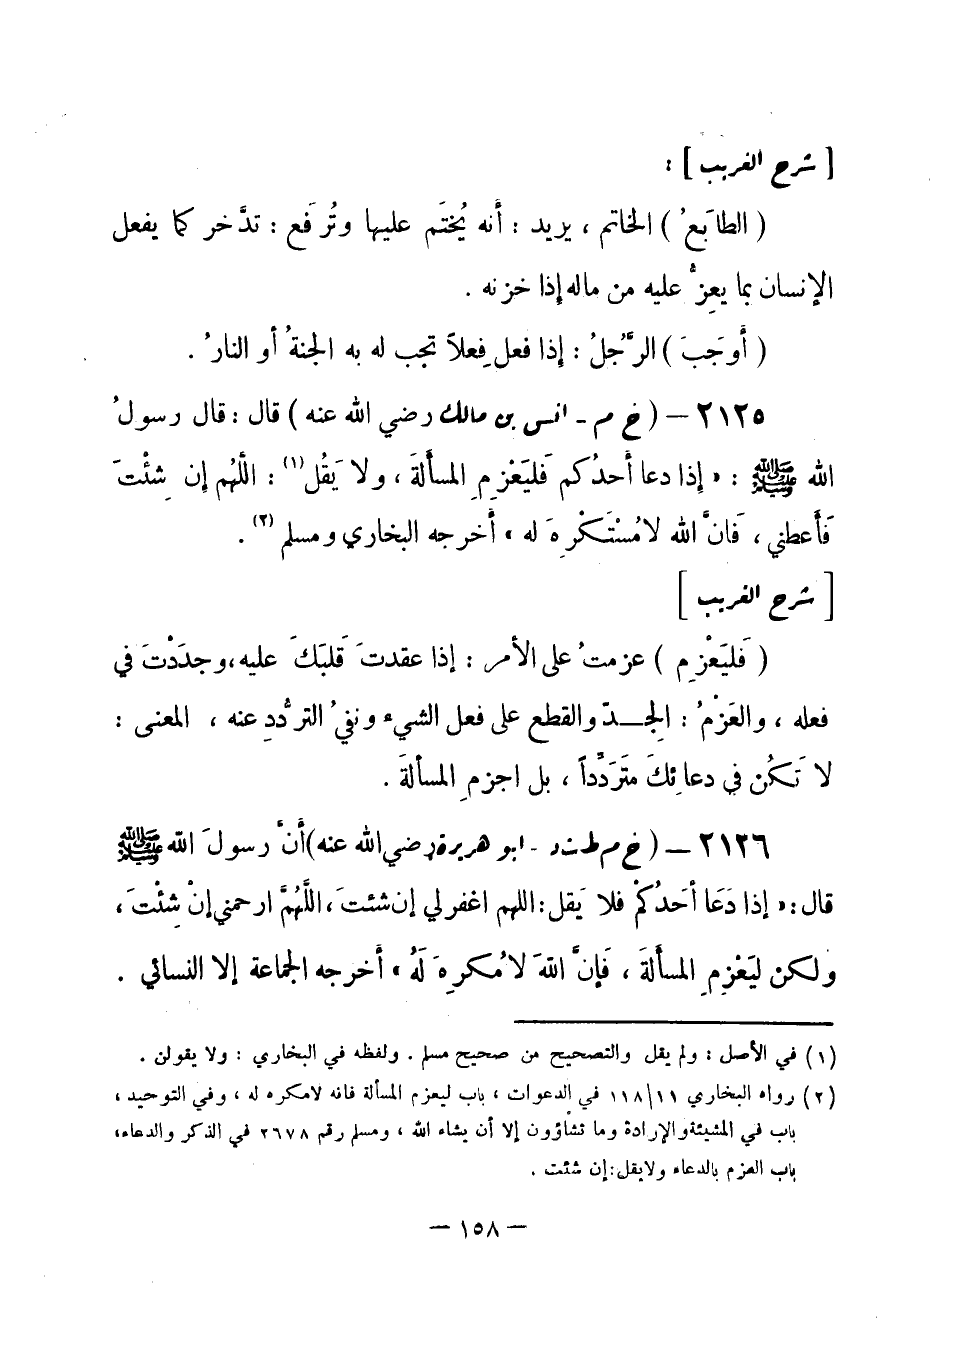 [ شرح الغريب ] :
( الطابَعُ ) الخاتم ، يريد : أنه يُختَم عليها وتُرفَع : تدَّخر كما يفعل
الإنسان بما يعِزُّ عليه من ماله إذا خزنه .
( أَوجَبَ ) الرَّجُلُ : إذا فعل فِعلاً تجب له به الجنةُ أو النارُ .
٢١٢٥ – ( خ م - أنس بن مالك رضي الله عنه ) قال : قال رسولُ
الله ﷺ : « إذا دعا أحدُكم فَليَعْزِمِ المسألةَ ، ولا يَقُل(١) : اللَّهُم إن شِئْتَ
فَأعطني ، فَانَّ الله لا مُسْتَكْرِهَ له » أخرجه البخاري ومسلم (٢) .
[ شرح الغريب ]
( فَليَعْزِم ) عزمتُ على الأمر : إذا عقدتَ قَلبَكَ عليه ، وجدَدْتَ في
فعله ، والعَزْمُ : الجِدّ والقطع على فعل الشيء ونفيُ التردُّدِ عنه ، المعنى :
لا تَكُن في دعائِكَ متَرَدِّداً ، بل اجزمِ المسألةَ .
٢١٢٦ – ( خ م ط ت د - أبو هريرة رضي الله عنه ) أَنَّ رسولَ الله ﷺ
قال : « إذا دَعَا أَحَدُكُمْ فلا يَقل : اللهم اغفر لي إن شئتَ ، اللَّهُمَّ ارحمني إنْ شِئْتَ ،
ولكن لِيَعْزِمِ المسألةَ ، فَإِنَّ اللهَ لا مُكرِهَ لَهُ » أخرجه الجماعة إلا النسائي .
(١) في الأصل : ولم يقل والتصحيح من صحيح مسلم . ولفظه في البخاري : ولا يقولن .
(٢) رواه البخاري ١١/١١٨ في الدعوات ، باب ليعزم المسألة فانه لامكره له ، وفي التوحيد ،
باب في المشيئة والإرادة وما تشاؤون إلا أن يشاء الله ، ومسلم رقم ٢٦٧٨ في الذكر والدعاء،
باب العزم بالدعاء ولا يقل : إن شئت .
– ١٥٨ –